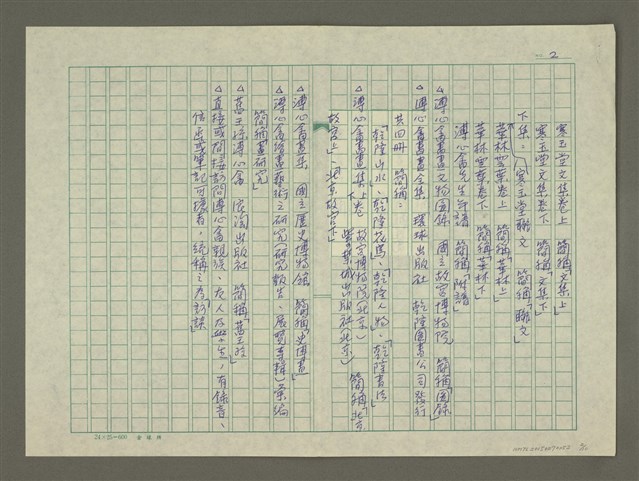 2
寒玉堂文集卷上　簡稱「文集上」
寒玉堂文集卷下　簡稱「文集下」
下集：寒玉堂聯文　簡稱「聯文」
華林雲葉卷上　簡稱「葉林上」
華林雲葉卷下　簡稱「葉林下」
溥心畬先生年譜　簡稱「附譜」
△溥心畬書畫文物圖錄　國立故宮博物院　簡稱「圖錄」
△溥心畬書畫全集　環球出版社　乾隆圖書公司發行
共四冊　簡稱：
「乾隆山水」、「乾隆花鳥」、「乾隆人物」、「乾隆書法」
△溥心畬書畫集上卷 下　故宮博物院（北京） 紫禁城出版社（北京）　簡稱「北京
故宮上」、「北京故宮下」
△溥心畬畫集　國立歷史博物館　簡稱「史博畫」
△溥心畬繪畫藝術之研究（研究報告、展覽專輯）彙編
簡稱「畫研究」
△舊王孫溥心畬　浪淘出版社　簡稱「舊王孫」
△直接或間接訪問溥心畬親族、友人及學生，有錄音、
信函或筆記可據者，統稱之為訪談
24×25=600